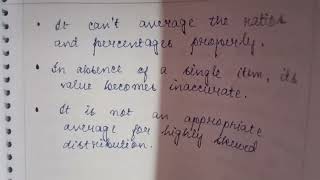 • It can't average the ratios
and percentages properly.
• In absence of a single item, its
value becomes inaccurate.
• It is not an appropriate
average for highly skewed
distribution.